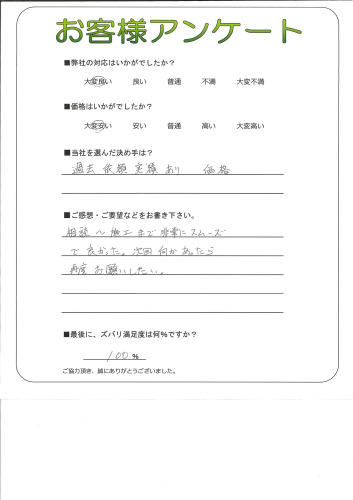 お客様アンケート
■弊社の対応はいかがでしたか？
大変良い 良い 普通 不満 大変不満
■価格はいかがでしたか？
大変安い 安い 普通 高い 大変高い
■当社を選んだ決め手は？
過去 依頼 実績 あり 価格
■ご感想・ご要望などをお書き下さい。
相談～施工まで非常にスムーズ
で良かった。次回何かあったら
再度お願いしたい。
■最後に、ズバリ満足度は何％ですか？
100％
ご協力頂き、誠にありがとうございました。